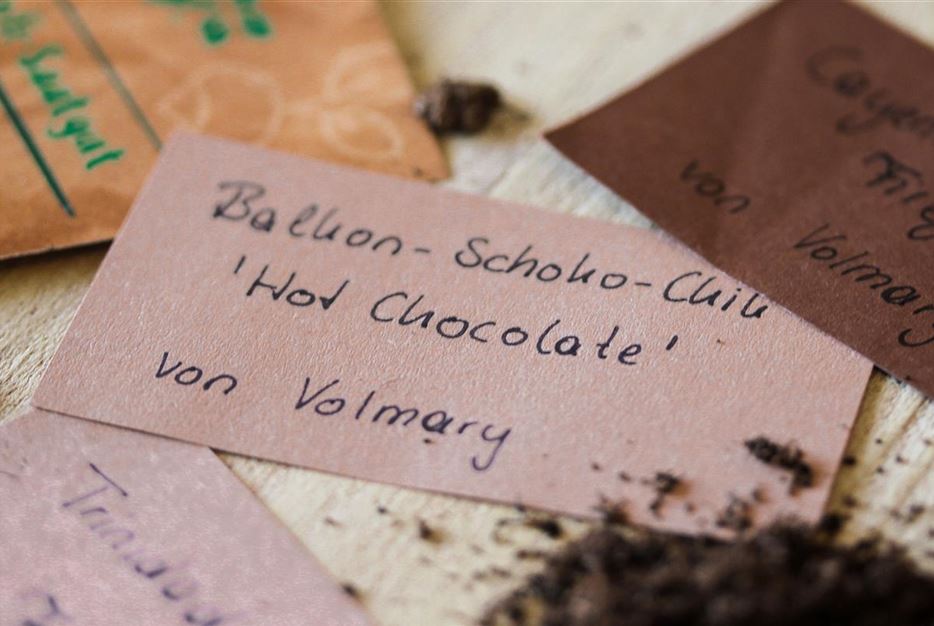 Saatgut
Balkon-Schoko-Chili
'Hot Chocolate'
von Volmary
von
Volmary